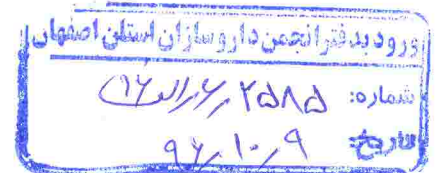 ورود بدفتر انجمن داروسازان استان اصفهان
شماره: ۲۵۸۵/۶/الف/۱۶
تاریخ: ۹۶/۱۰/۹